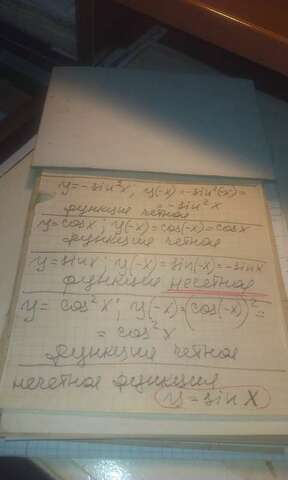 y=-sin²x; y(-x)=-sin²(-x)=
=-sin²x
функция четная
y=cosx; y(-x)=cos(-x)=cosx
функция четная
y=sinx; y(-x)=sin(-x)=-sinx
функция нечетная
y=cos²x; y(-x)=(cos(-x))²=
=cos²x
функция четная
нечетная функция
y=sinx